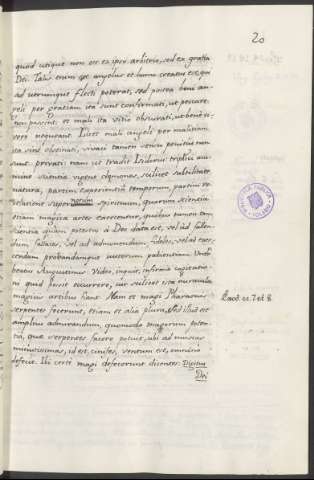 20
quod utique non est ex ipso arbitrio, sed ex gratia
Dei. Talis enim et angelus et homo creatus est, qui
ad utrumque flecti poterat, sed postea boni an-
geli per gratiam ita sunt confirmati, ut peccare
non possint, et mali ita vitio obdurati, ut bene vi-
vere nequeant. Licet mali angeli per malitiam
ita sint obstinati, vivaci tamen sensu penitus non
sunt privati: nam ut tradit Isidorus triplici acu-
mine scientia vigent daemones, scilicet subtilitate
natura, partim experientia temporum, partim re-
velatione supernorum spirituum, quorum scientia
etiam magica artes exercentur, quibus tamen tam
scientia quam potestas a Deo data est, vel ad fallen-
dum fallaces, vel ad admonendum fideles, vel ad exer-
cendam probandamque iustorum patientiam. Unde
beatus Augustinus: Video, inquit, infirma cogitatio-
ni quid possit occurrere, cur scilicet ista miracula
magicis artibus fiant. Nam et magi Pharaonis
serpentes fecerunt, et iam et alia plura. Sed illud est
amplius admirandum, quomodo magorum poten-
tia, quae serpentes facere potuit, ubi ad muscas
minutissimas, id est, cinifes, ventum est, omnino
defecit. Ibi certe magi defecerunt dicentes: Digitus
Dei
Exod. cc. 7. et 8.